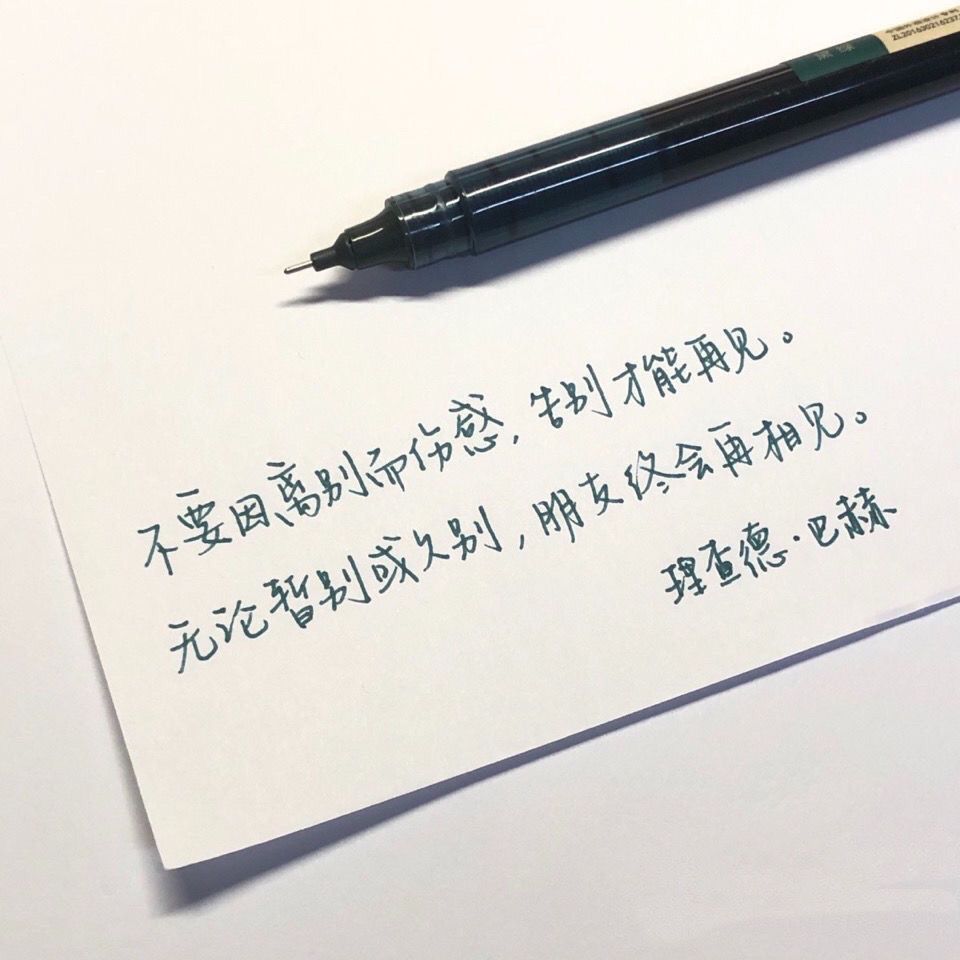 不要因离别而伤感，告别才能再见。
无论暂别或久别，朋友终会再相见。
理查德·巴赫
墨绿